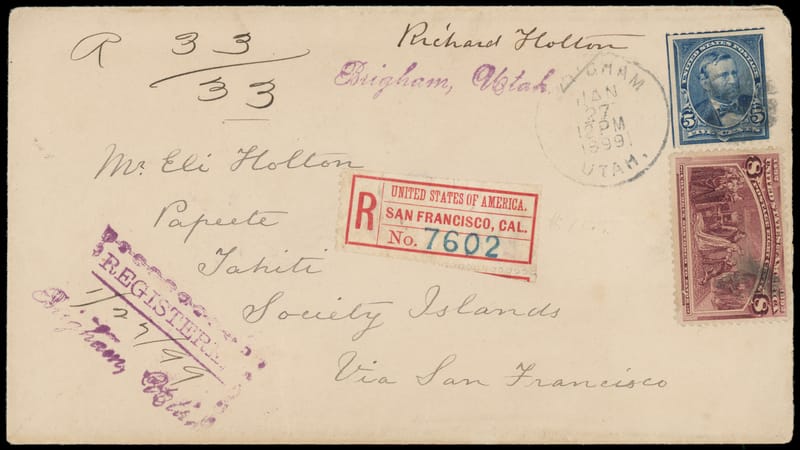 R 33
33
Richard Holton
Brigham, Utah
BRIGHAM
JAN
27
12 PM
1899
UTAH.
UNITED STATES POSTAGE
5 5
FIVE CENTS
Mr Eli Holton
Papeete
Tahiti
Society Islands
Via San Francisco
R
UNITED STATES OF AMERICA.
SAN FRANCISCO, CAL.
No. 7602
REGISTERED
1/27/99
Brigham, Utah
UNITED STATES OF AMERICA
8 8